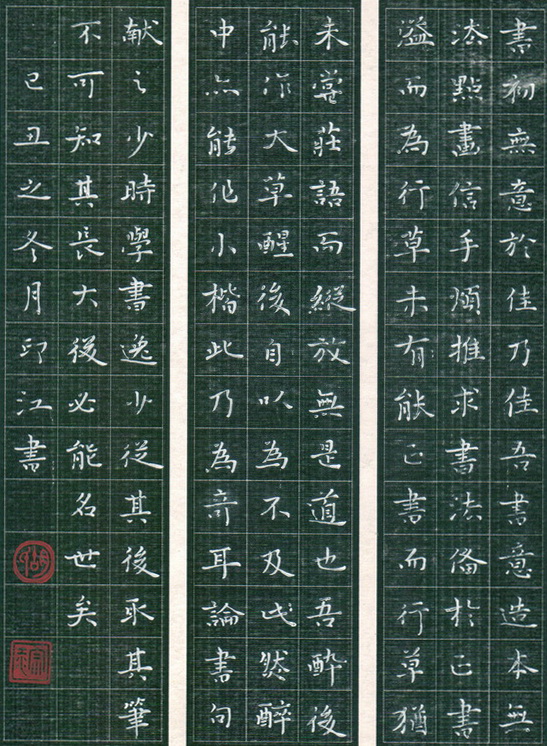 書初無意於佳乃佳吾書意造本無
法點畫信手煩推求書法備於正書
溢而為行草未有能正書而行草猶
未嘗莊語而縱放無是道也吾醉後
能作大草醒後自以為不及此然醉
中亦能作小楷此乃為奇耳論書句
献之少時學書逸少從其後取其筆
不可知其長大後必能名世矣
己丑之冬月印江書